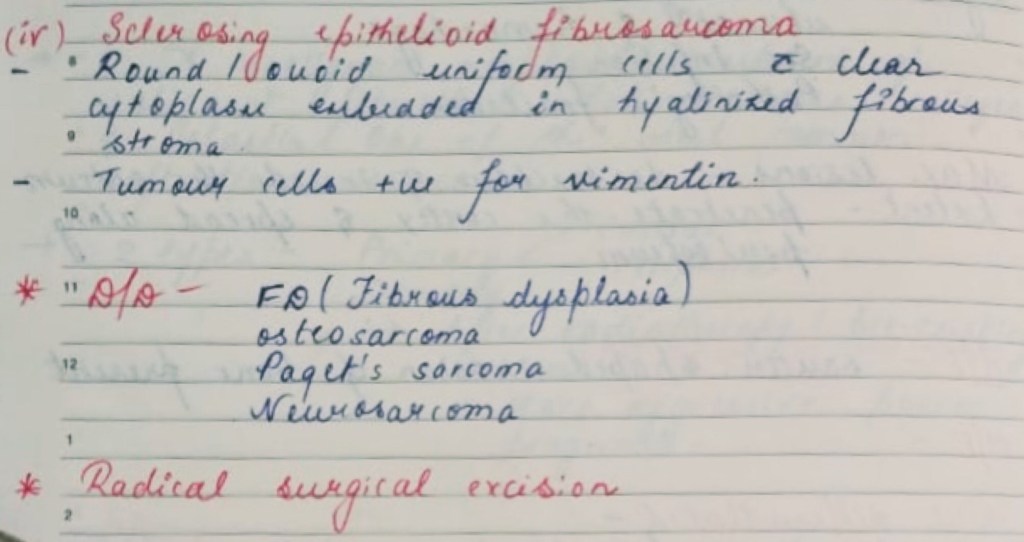 (iv) Sclerosing epithelioid fibrosarcoma
- 8 Round / ovoid uniform cells c̄ clear
cytoplasm embedded in hyalinized fibrous
9 stroma.
- Tumour cells +ve for vimentin.
10
* 11 D/D - FD (Fibrous dysplasia)
osteosarcoma
12 Paget's sarcoma
Neurosarcoma
1
* Radical surgical excision
2